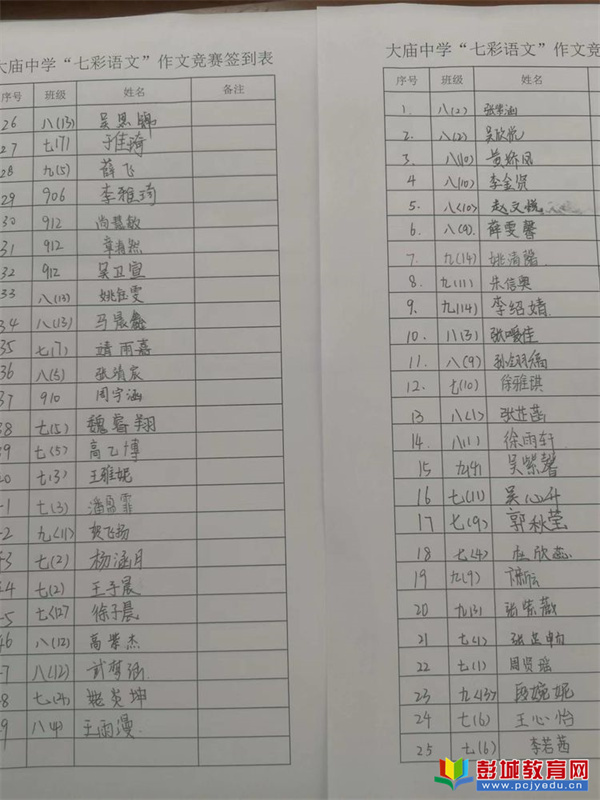 大庙中学“七彩语文”作文竞赛签到表
序号 班级 姓名 备注
26 八(13) 吴思卿
27 七(7) 于佳琦
28 九(5) 薛飞
29 906 李雅琦
30 912 尚慧敏
31 912
32 912 吴卫宣
33 八(13) 姚钰雯
34 八(13) 马晨鑫
35 七(7) 靖雨嘉
36 八(5) 张靖宸
37 910 周宇涵
38 七(5) 魏睿翔
39 七(5) 高乙博
40 七(3) 王雅妮
41 七(3) 潘昱霏
42 九(11) 贺飞扬
43 七(2) 杨涵月
44 七(2) 王子晨
45 七(12) 徐子晨
46 八(12) 高荣杰
47 八(12) 武梦涵
48 七(4) 炎坤
49 八(4) 王雨漫
大庙中学“七彩语文”作文
序号 班级 姓名
1. 八(2)
2. 八(2) 吴欣悦
3. 八(10) 黄娇凤
4 八(10) 李金贤
5. 八(10) 赵文悦
6. 八(9) 薛雯馨
7. 九(14) 姚清馨
8. 九(11) 朱信奥
9. 九(14) 李绍婧
10. 八(3) 张暖佳
11. 八(9)
12. 七(10) 徐雅琪
13 八(1) 张芷菡
14. 八(1) 徐雨轩
15 九(9) 吴紫馨
16 七(11) 吴心斗
17 七(9) 郭秋莹
18 七(4)
19 九(9) 陈耘
20 九(3) 张紫薇
21 七(1) 张芷
22 七(1) 周贤瑶
23 九(13) 段婉妮
24 七(6) 王心怡
25 七(6) 李若茜
彭城教育网
www.pcjyedu.cn